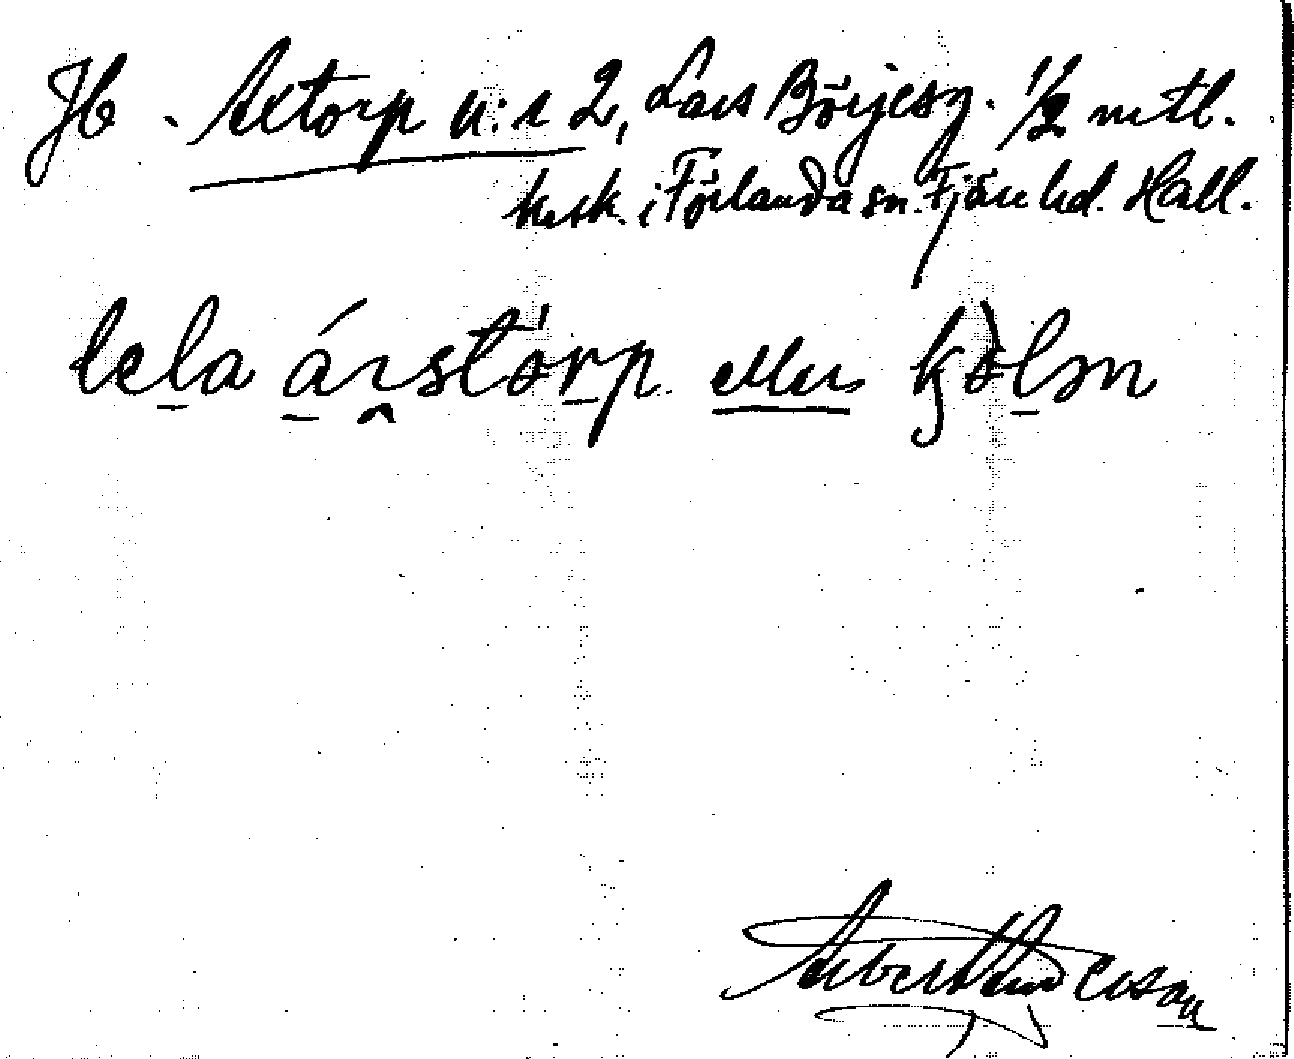 Jb. Axtorp n:r 2, Lars Börjesg. 1/2 mtl.
krsk. i Förlanda sn. Fjäre hd. Hall.
lela árstórp eller kjòlsm
Albert Anderson